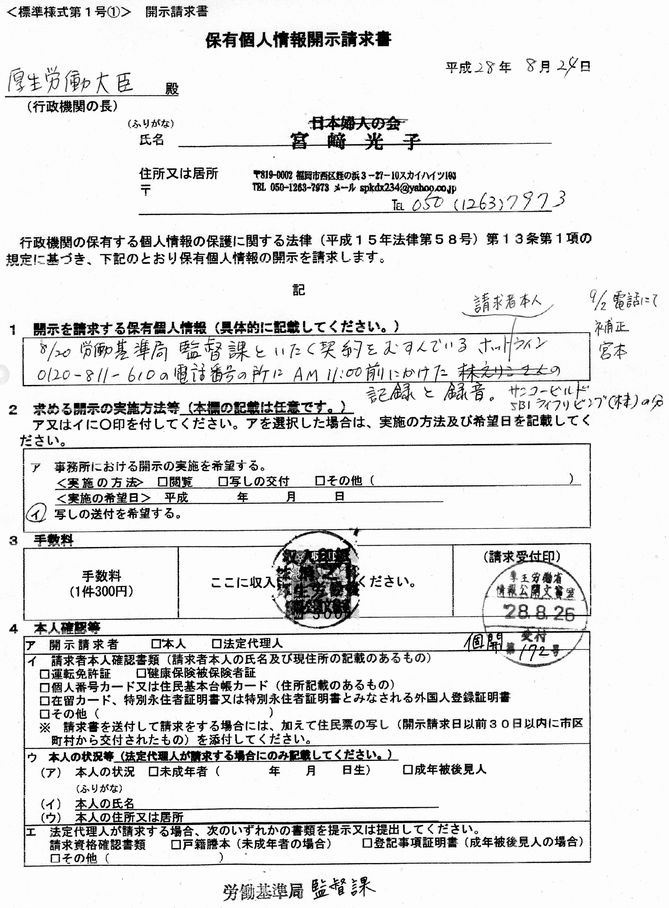 ＜標準様式第１号①＞　開示請求書
保有個人情報開示請求書
平成28年 8月24日
厚生労働大臣 殿
（行政機関の長）
（ふりがな）
日本婦人の会
氏名 宮﨑光子
住所又は居所 〒819-0002 福岡市西区姪の浜３－27－10スカイハイツ103
〒 TEL 050-1263-7973 メール spkdx234@yahoo.co.jp
TEL 050 (1263) 7973
行政機関の保有する個人情報の保護に関する法律（平成１５年法律第５８号）第１３条第１項の
規定に基づき、下記のとおり保有個人情報の開示を請求します。
記
請求者本人
9/2 電話にて
補正
宮本
１ 開示を請求する保有個人情報（具体的に記載してください。）
8/20 労働基準局 監督課といたく契約をむすんでいる ホットライン
0120-811-610の電話番号の所に AM 11:00前にかけた
記録と録音。
サンコービルド
SBIライフリビング(株)の分
２ 求める開示の実施方法等（本欄の記載は任意です。）
ア又はイに〇印を付してください。アを選択した場合は、実施の方法及び希望日を記載してく
ださい。
ア 事務所における開示の実施を希望する。
＜実施の方法＞ □閲覧 □写しの交付 □その他（ ）
＜実施の希望日＞ 平成 年 月 日
イ 写しの送付を希望する。
３ 手数料
手数料
（1件300円）
ここに収入 ください。
収入印紙
（請求受付印）
厚生労働省
情報公開文書室
28.8.26
受付
個開 第172号
４ 本人確認等
ア 開示請求者 □本人 □法定代理人
イ 請求者本人確認書類（請求者本人の氏名及び現住所の記載のあるもの）
□運転免許証 □健康保険被保険者証
□個人番号カード又は住民基本台帳カード（住所記載のあるもの）
□在留カード、特別永住者証明書又は特別永住者証明書とみなされる外国人登録証明書
□その他（ ）
※ 請求書を送付して請求をする場合には、加えて住民票の写し（開示請求日以前３０日以内に市区
町村から交付されたもの）を添付してください。
ウ 本人の状況等（法定代理人が請求する場合にのみ記載してください。）
（ア） 本人の状況 □未成年者（ 年 月 日生） □成年被後見人
（ふりがな）
（イ） 本人の氏名
（ウ） 本人の住所又は居所
エ 法定代理人が請求する場合、次のいずれかの書類を提示又は提出してください。
請求資格確認書類 □戸籍謄本（未成年者の場合） □登記事項証明書（成年被後見人の場合）
□その他（ ）
労働基準局 監督課